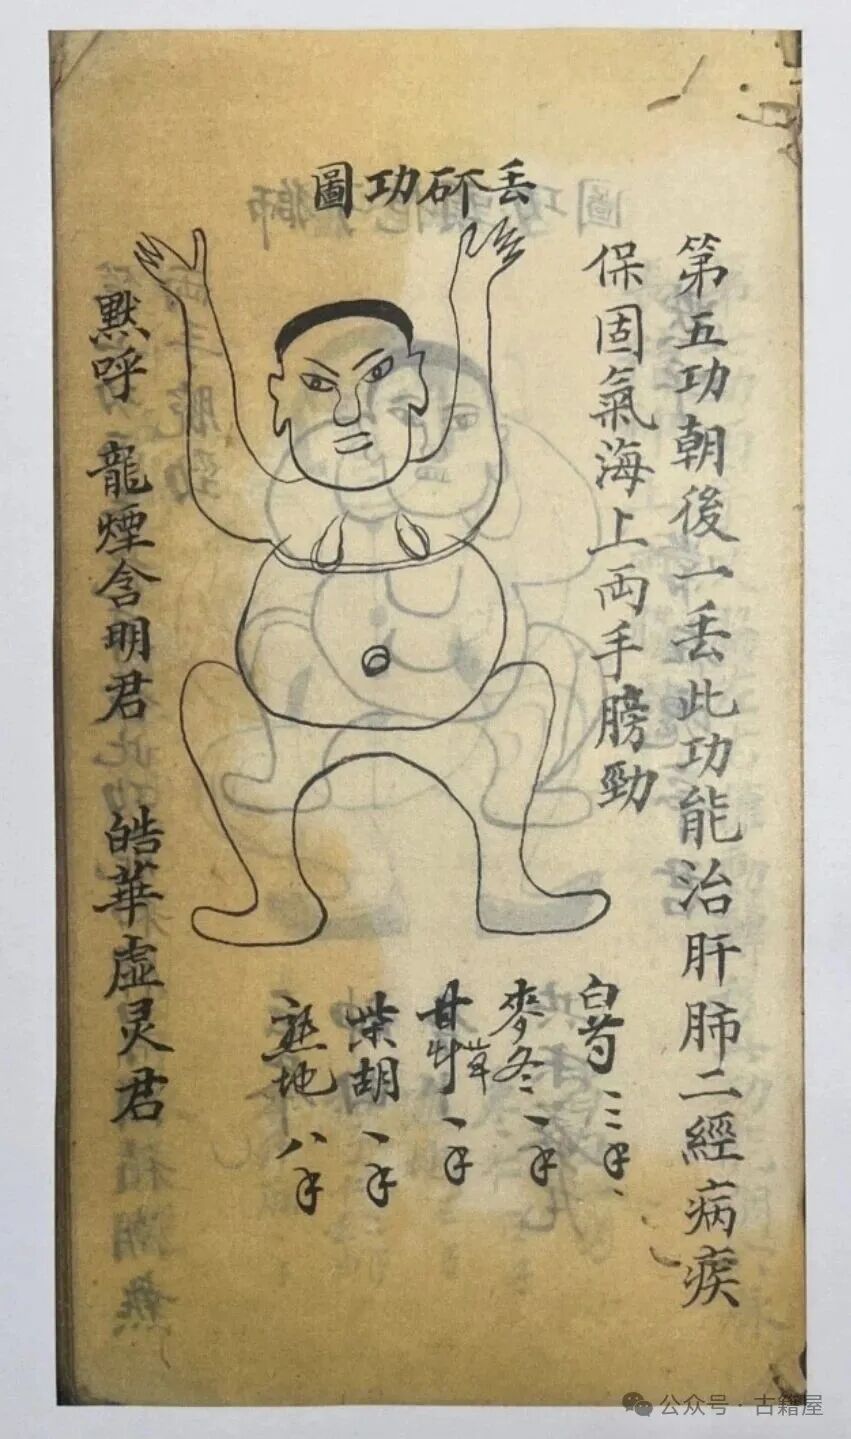 丢功圖
第五功朝後一丢此功能治肝肺二經病疾
保固氣海上両手膀勁
白芍 三
麥冬 一
甘草 一
柴胡 一
熟地 八
默呼 龍煙含明君 皓華虛灵君
公众号·古籍屋